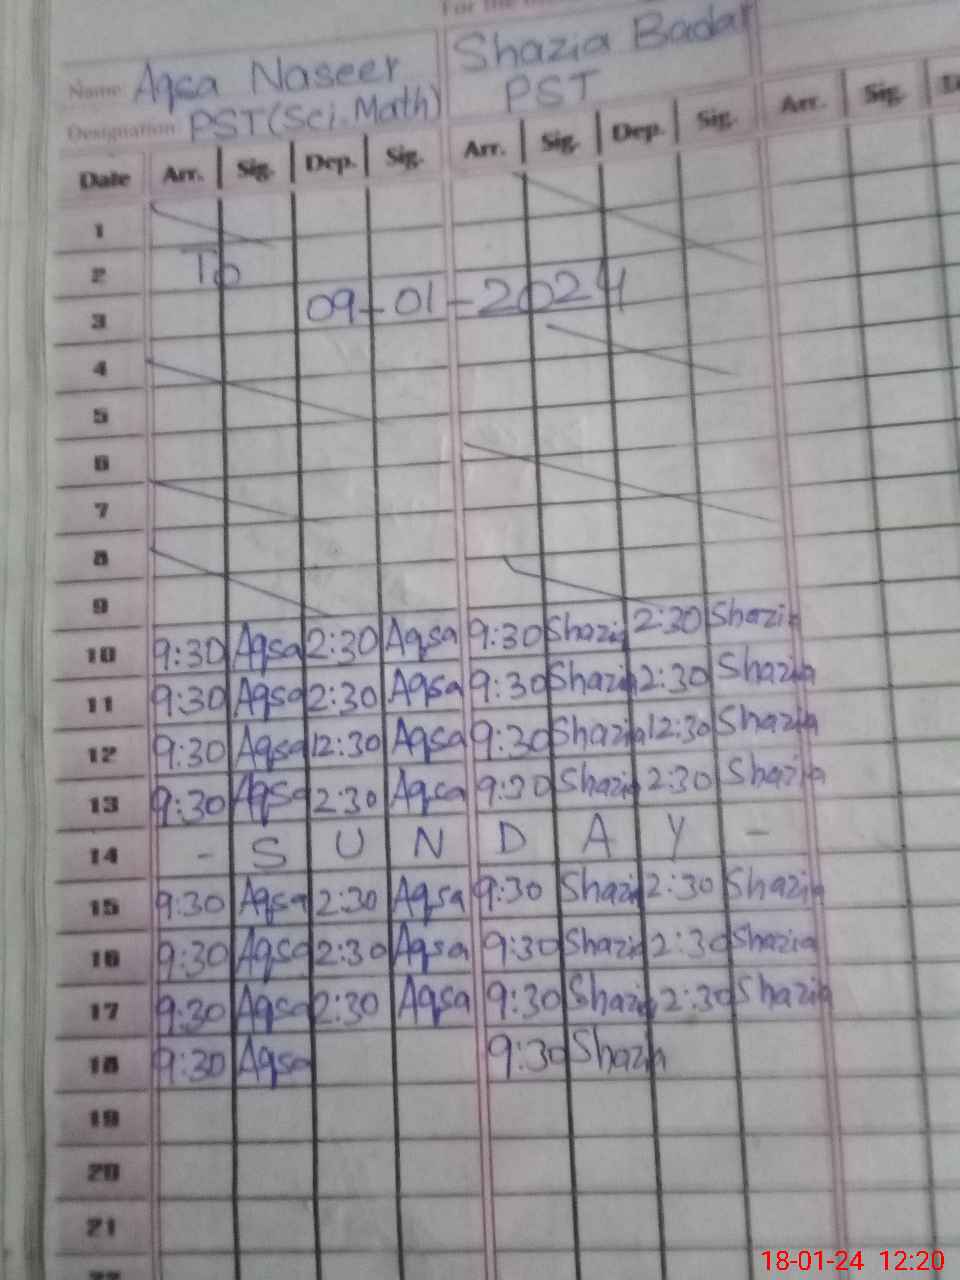 For the
Name Aqsa Naseer Shazia Badar
Designation PST(Sci.Math) PST
Date Arr. Sig. Dep. Sig. Arr. Sig. Dep. Sig. Arr. Sig.
1
2 To
3 09-01-2024
4
5
6
7
8
9
10 9:30 Aqsa 2:30 Aqsa 9:30 Shazia 2:30 Shazia
11 9:30 Aqsa 2:30 Aqsa 9:30 Shazia 2:30 Shazia
12 9:30 Aqsa 12:30 Aqsa 9:30 Shazia 12:30 Shazia
13 9:30 Aqsa 2:30 Aqsa 9:30 Shazia 2:30 Shazia
14 - S U N D A Y -
15 9:30 Aqsa 2:30 Aqsa 9:30 Shazia 2:30 Shazia
16 9:30 Aqsa 2:30 Aqsa 9:30 Shazia 2:30 Shazia
17 9:30 Aqsa 2:30 Aqsa 9:30 Shazia 2:30 Shazia
18 9:30 Aqsa 9:30 Shazia
19
20
21
22
18-01-24 12:20